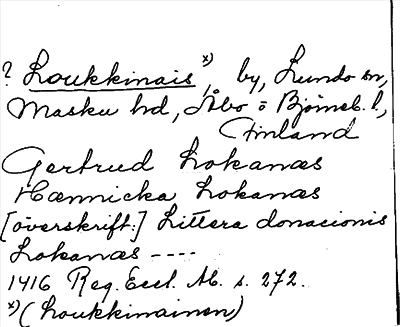 ? Loukkinais x), by, Lundo sn,
Masku hd, Åbo o Björneb. l,
Finland
Gertrud Lokanæs
Hænnicka Lokanæs
[överskrift:] Littera donacionis
Lokanæs ----
1416 Reg. Eccl. Ab. s. 272.
x) (Loukkinainen)